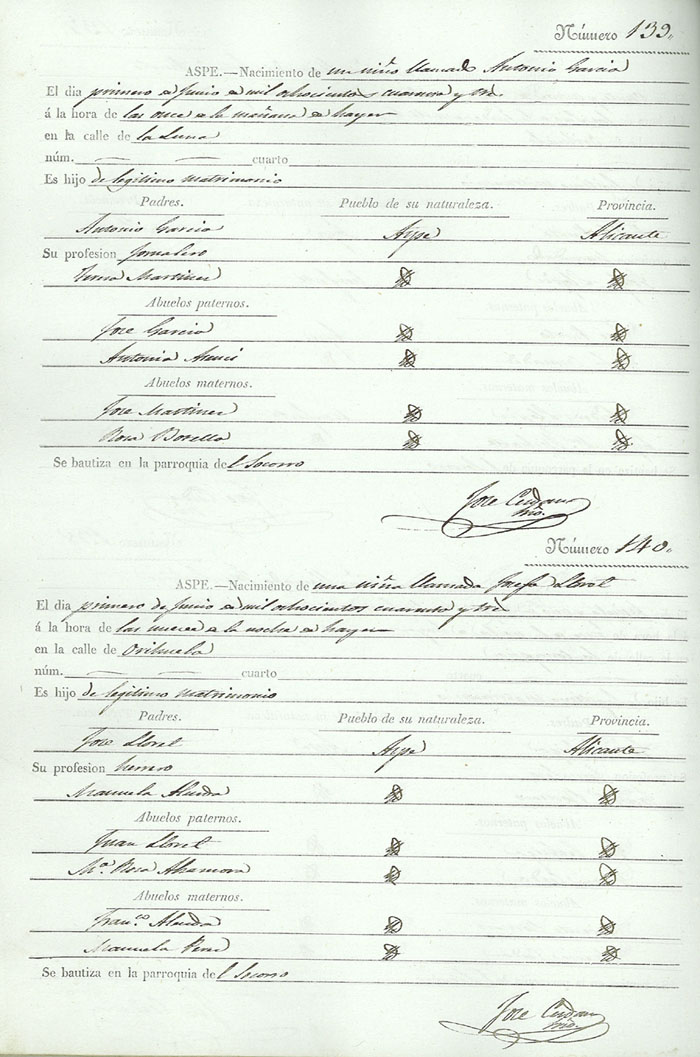 Número 139.
ASPE.—Nacimiento de un niño llamado Antonio Garcia
El dia primero de Junio de mil ochocientos cuarenta y tres
á la hora de las once de la mañana de hayer
en la calle de la Luna
núm. — — cuarto
Es hijo de legitimo matrimonio
Padres. Pueblo de su naturaleza. Provincia.
Antonio Garcia Aspe Alicante
Su profesion Jornalero
Martinez
Abuelos paternos.
Jose Garcia
Antonia
Abuelos maternos.
Jose Martinez
Rosa Botella
Se bautiza en la parroquia del Socorro
Jose Cerdan
Número 140.
ASPE.—Nacimiento de una niña llamada Josefa Lloret
El dia primero de Junio de mil ochocientos cuarenta y tres
á la hora de las nueve de la noche de hayer
en la calle de Orihuela
núm. — — cuarto
Es hijo de legitimo matrimonio
Padres. Pueblo de su naturaleza. Provincia.
Jose Lloret Aspe Alicante
Su profesion herrero
Manuela
Abuelos paternos.
Juan Lloret
Mª. Rosa
Abuelos maternos.
Franco.
Manuela Perez
Se bautiza en la parroquia del Socorro
Jose Cerdan